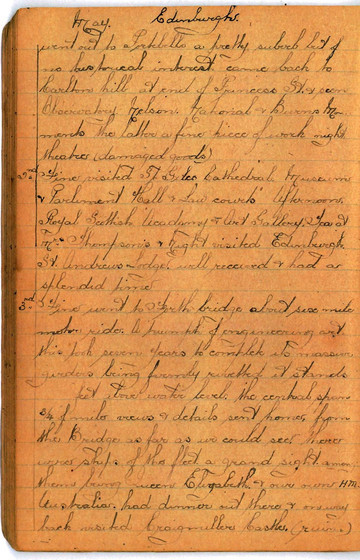 May. Edinburgh.
went out to Portobello a pretty suberb but of
no historical interest came back to
Carlton hill at end of Princess St. & seen
Observatory Nelson, National & Burns Monu-
ments the latter a fine piece of work night
theatre (damaged goods)
2nd Fine visited St Giles Cathedral Museum
& Parliment Hall & Law courts Afternoon,
Royal Scottish Academy & Art Gallery, Tea at
Mrs Thompson's & Night visited Edinburgh
St. Andrews Lodge, well received & had a
splendid time
3rd Fine went to Forth bridge about six mile
motor ride. A triumph of engineering art
this took seven years to complete its massive
girders being firmly rivetted it stands
feet above water level, the central spans
3/4 of mile views & details sent home, from
the Bridge as far as we could see there
were ships of the fleet a grand sight among
them being Queen Elizabeth & our now HM.
Australia, had dinner out there & on way
back visited Craigmiller Castle, (ruins)